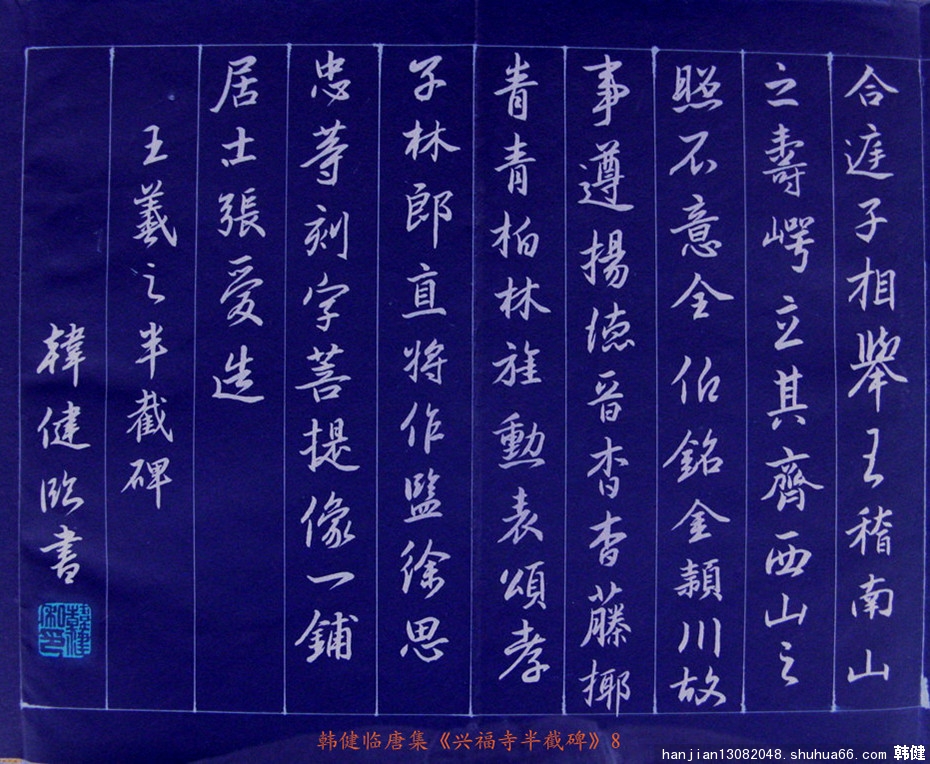 合遮子相举王稽南山
之壽崿立其齊西山之
照不意全伯銘金穎川故
事遵揚德音杳杳藤揶
青青柏林旌勳表頌孝
子林郎直將作監徐思
忠等刻字菩提像一鋪
居士張爱造
王羲之半截碑
韓健临書
韩健临唐集《兴福寺半截碑》8
hanjian13082048.shuhua66.com 韩健